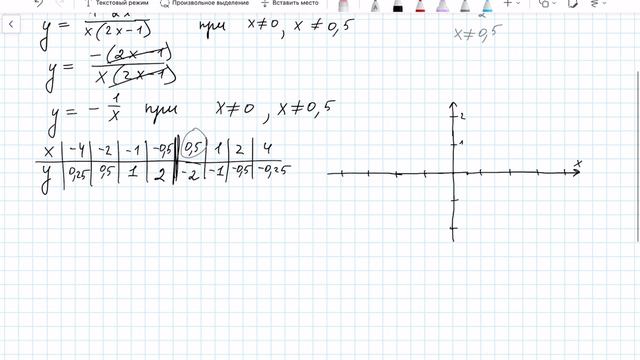 Текстовый режим Произвольное выделение Вставить место
y = 1-2x / x(2x-1) при x≠0, x≠0,5
x≠0,5
y = -(2x-1) / x(2x-1)
y = - 1/x при x≠0, x≠0,5
x | -4 | -2 | -1 | -0,5 | 0,5 | 1 | 2 | 4
y | 0,25 | 0,5 | 1 | 2 | -2 | -1 | -0,5 | -0,25
2
1
x